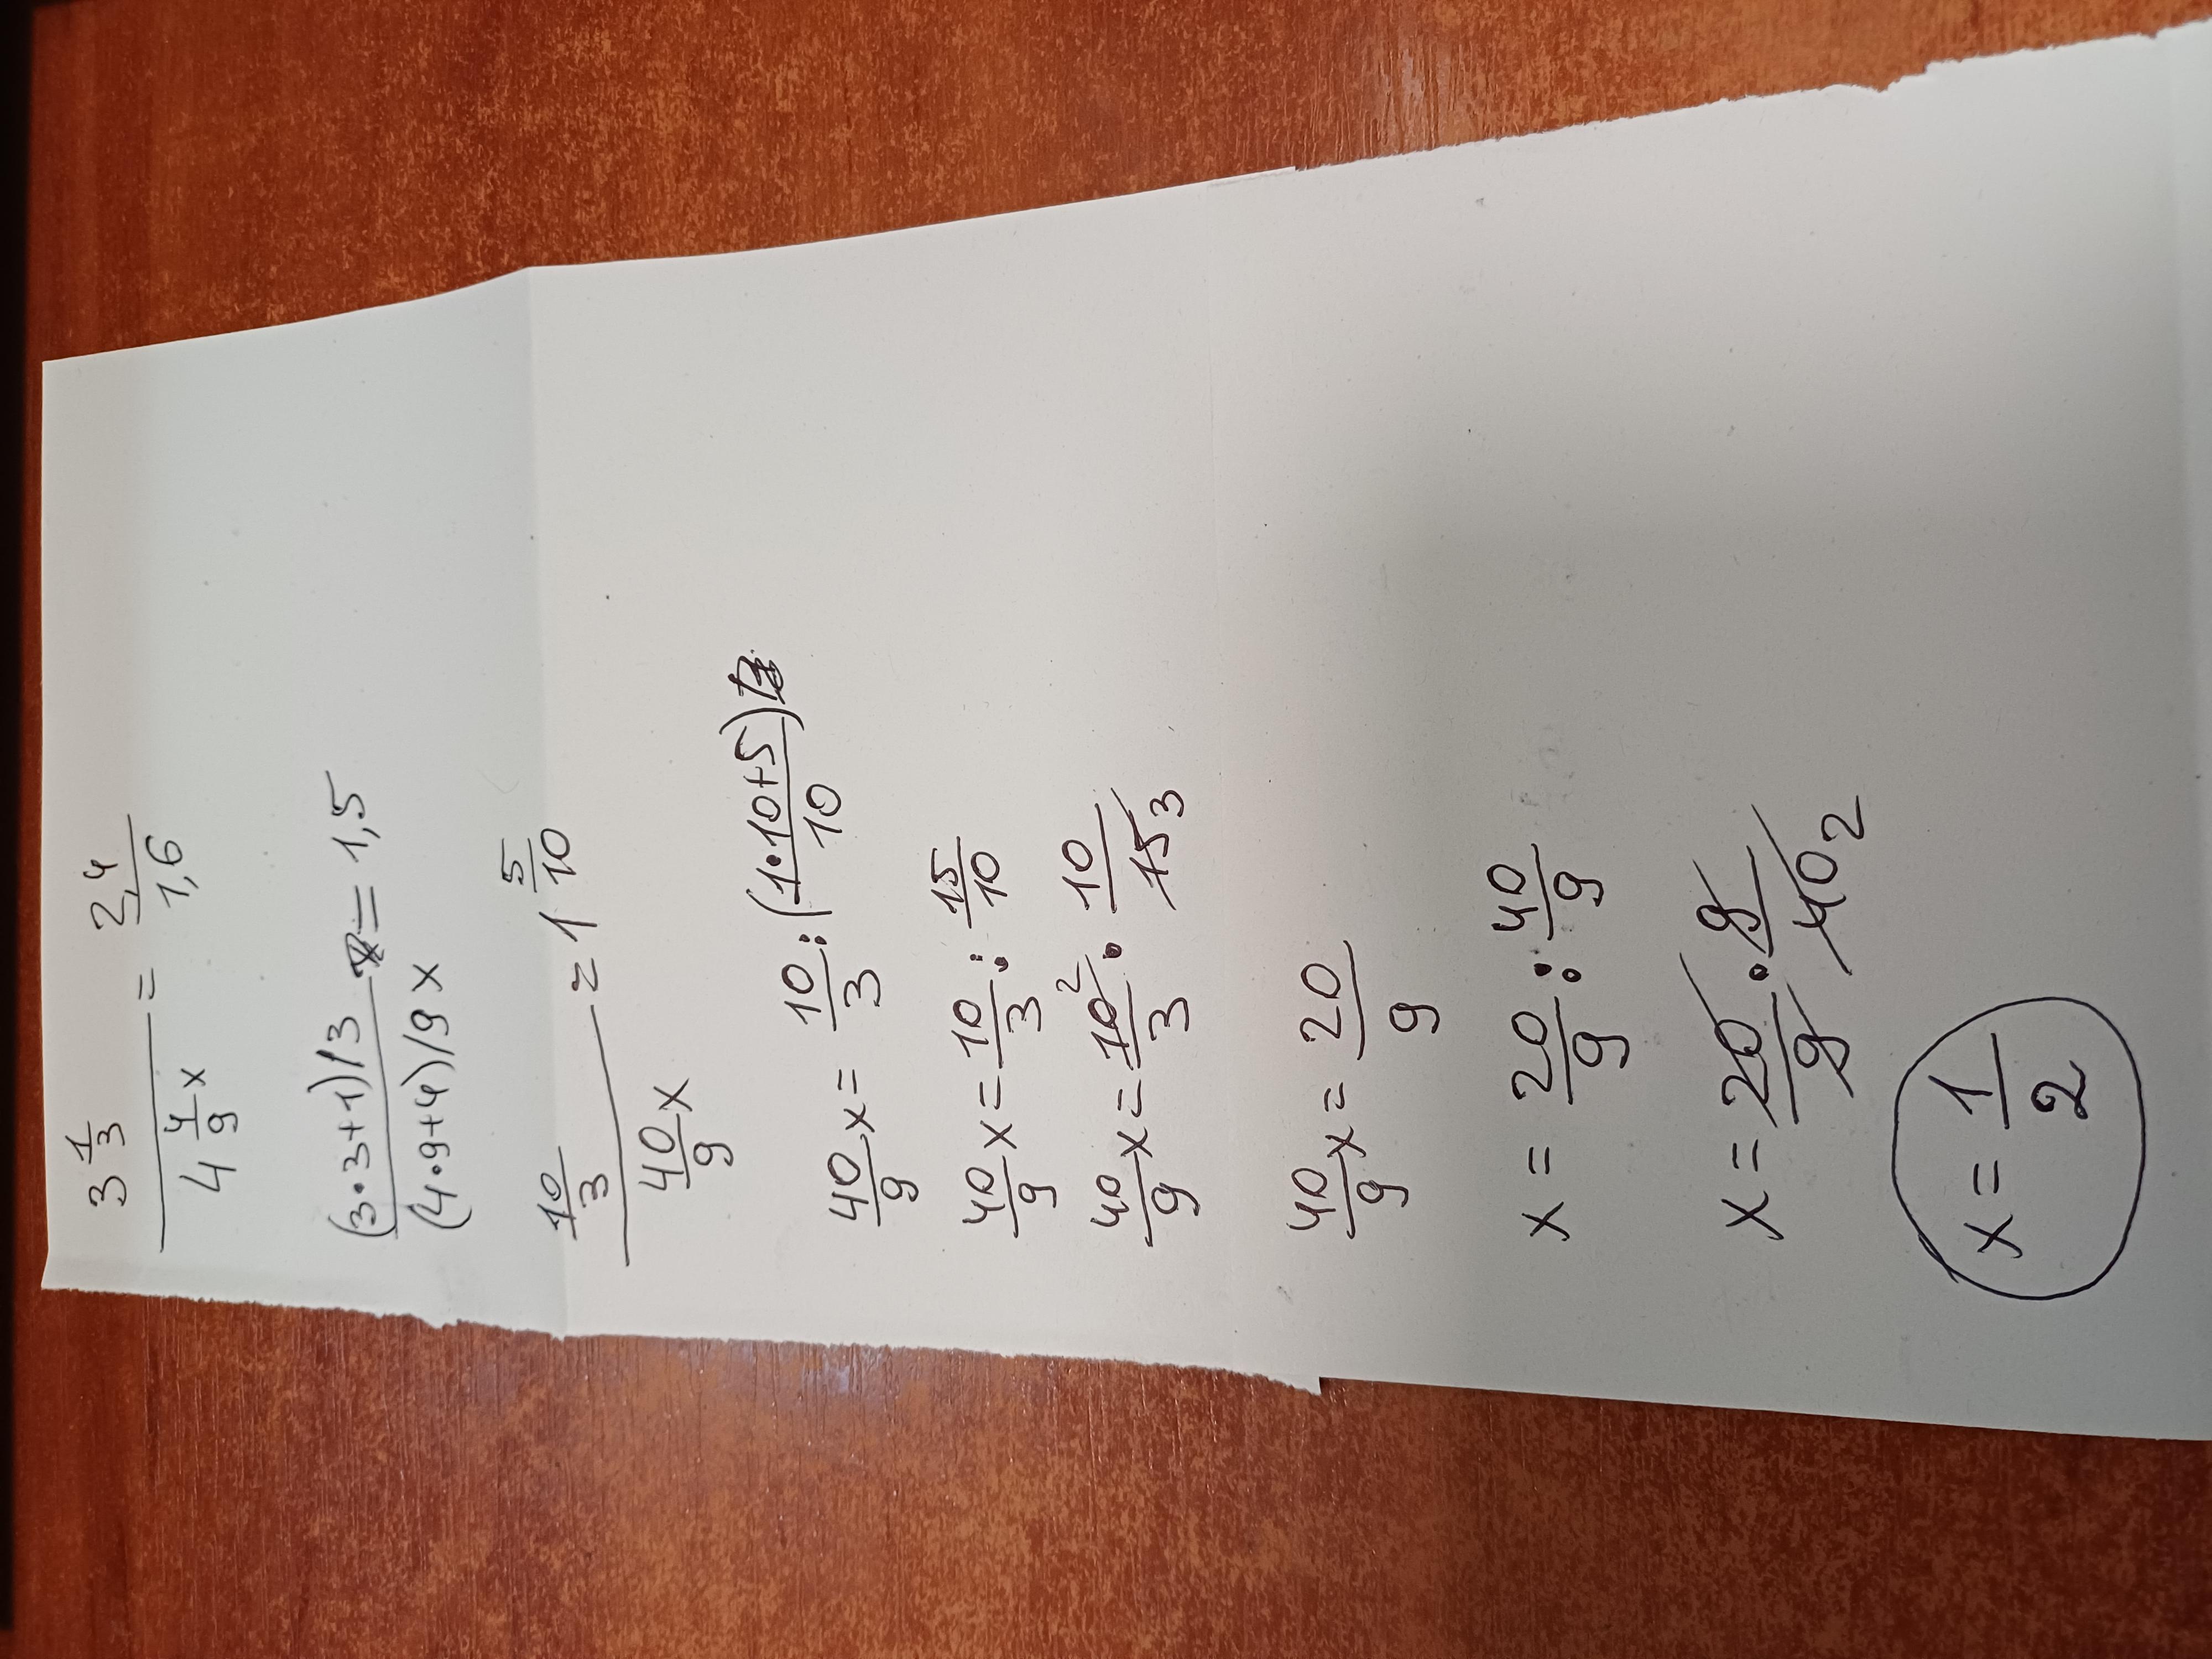 3 1/3 / 4 4/9 x = 2,4/1,6
(3·3+1)/3 / (4·9+4)/9 x = 1,5
10/3 / 40/9 x = 1 5/10
40/9 x = 10/3 : (1·10+5)/10
40/9 x = 10/3 : 15/10
40/9 x = 10 2/3 · 10/15 3
40/9 x = 20/9
x = 20/9 : 40/9
x = 20/9 · 9/40 2
x = 1/2